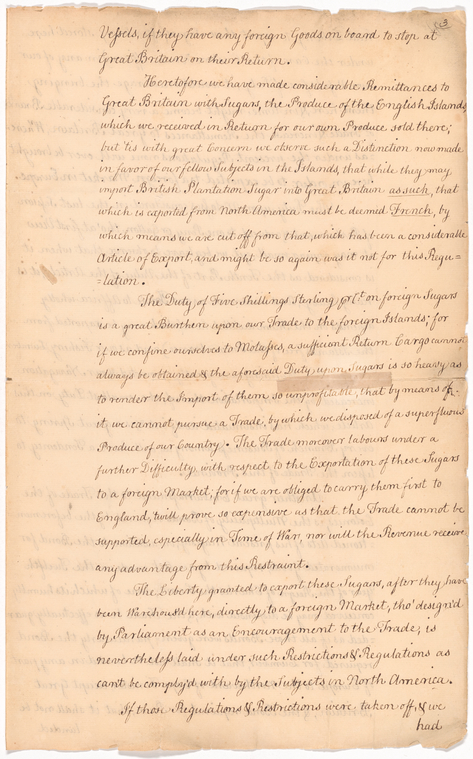 3
Vessels, if they have any foreign Goods on board to stop at
Great Britain on their Return.
Heretofore we have made considerable Remittances to
Great Britain with Sugars, the Produce of the English Islands,
which we received in Return for our own Produce sold there;
but 'tis with great Concern we observe such a Distinction now made
in favor of our fellow Subjects in the Islands, that while they may
import British Plantation Sugar into Great Britain as such, that
which is exported from North America must be deemed French, by
which means we are cut off from that, which has been a considerable
Article of Export, and might be so again was it not for this Regu=
=lation.
The Duty of Five Shillings Sterling pr Ct. on foreign Sugars
is a great Burthen upon our Trade to the foreign Islands; for
if we confine ourselves to Molasses, a sufficient Return Cargo cannot
always be obtained & the aforesaid Duty upon Sugars is so heavy as
to render the Import of them so unprofitable, that by means of
it we cannot pursue a Trade, by which we disposed of a superfluous
Produce of our Country. The Trade moreover labours under a
further Difficulty, with respect to the Exportation of these Sugars
to a foreign Market; for if we are obliged to carry them first to
England, 'twill prove so expensive us that the Trade cannot be
supported, especially in Time of War, nor will the Revenue receive
any advantage from this Restraint.
The Liberty granted to export these Sugars, after they have
been Warehous'd here, directly to a foreign Market, tho' design'd
by Parliament as an Encouragement to the Trade, is
nevertheless laid under such Restrictions & Regulations as
can't be comply'd with by the Subjects in North America.
If those Regulations & Restrictions were taken off, & we
had